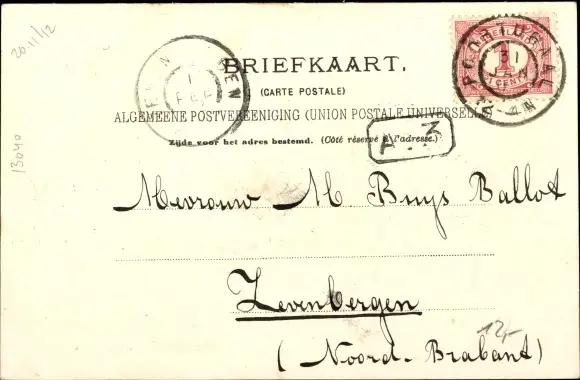 20.11/12
13040
BRIEFKAART.
(CARTE POSTALE)
ALGEMEENE POSTVEREENIGING (UNION POSTALE UNIVERSELLE)
Zijde voor het adres bestemd. (Côté réservé à l'adresse.)
1
CENT
POORTUGAAL
1
FEB
A.3
Mevrouw M Buys Ballot
Zevenbergen
(Noord-Brabant)
12,-